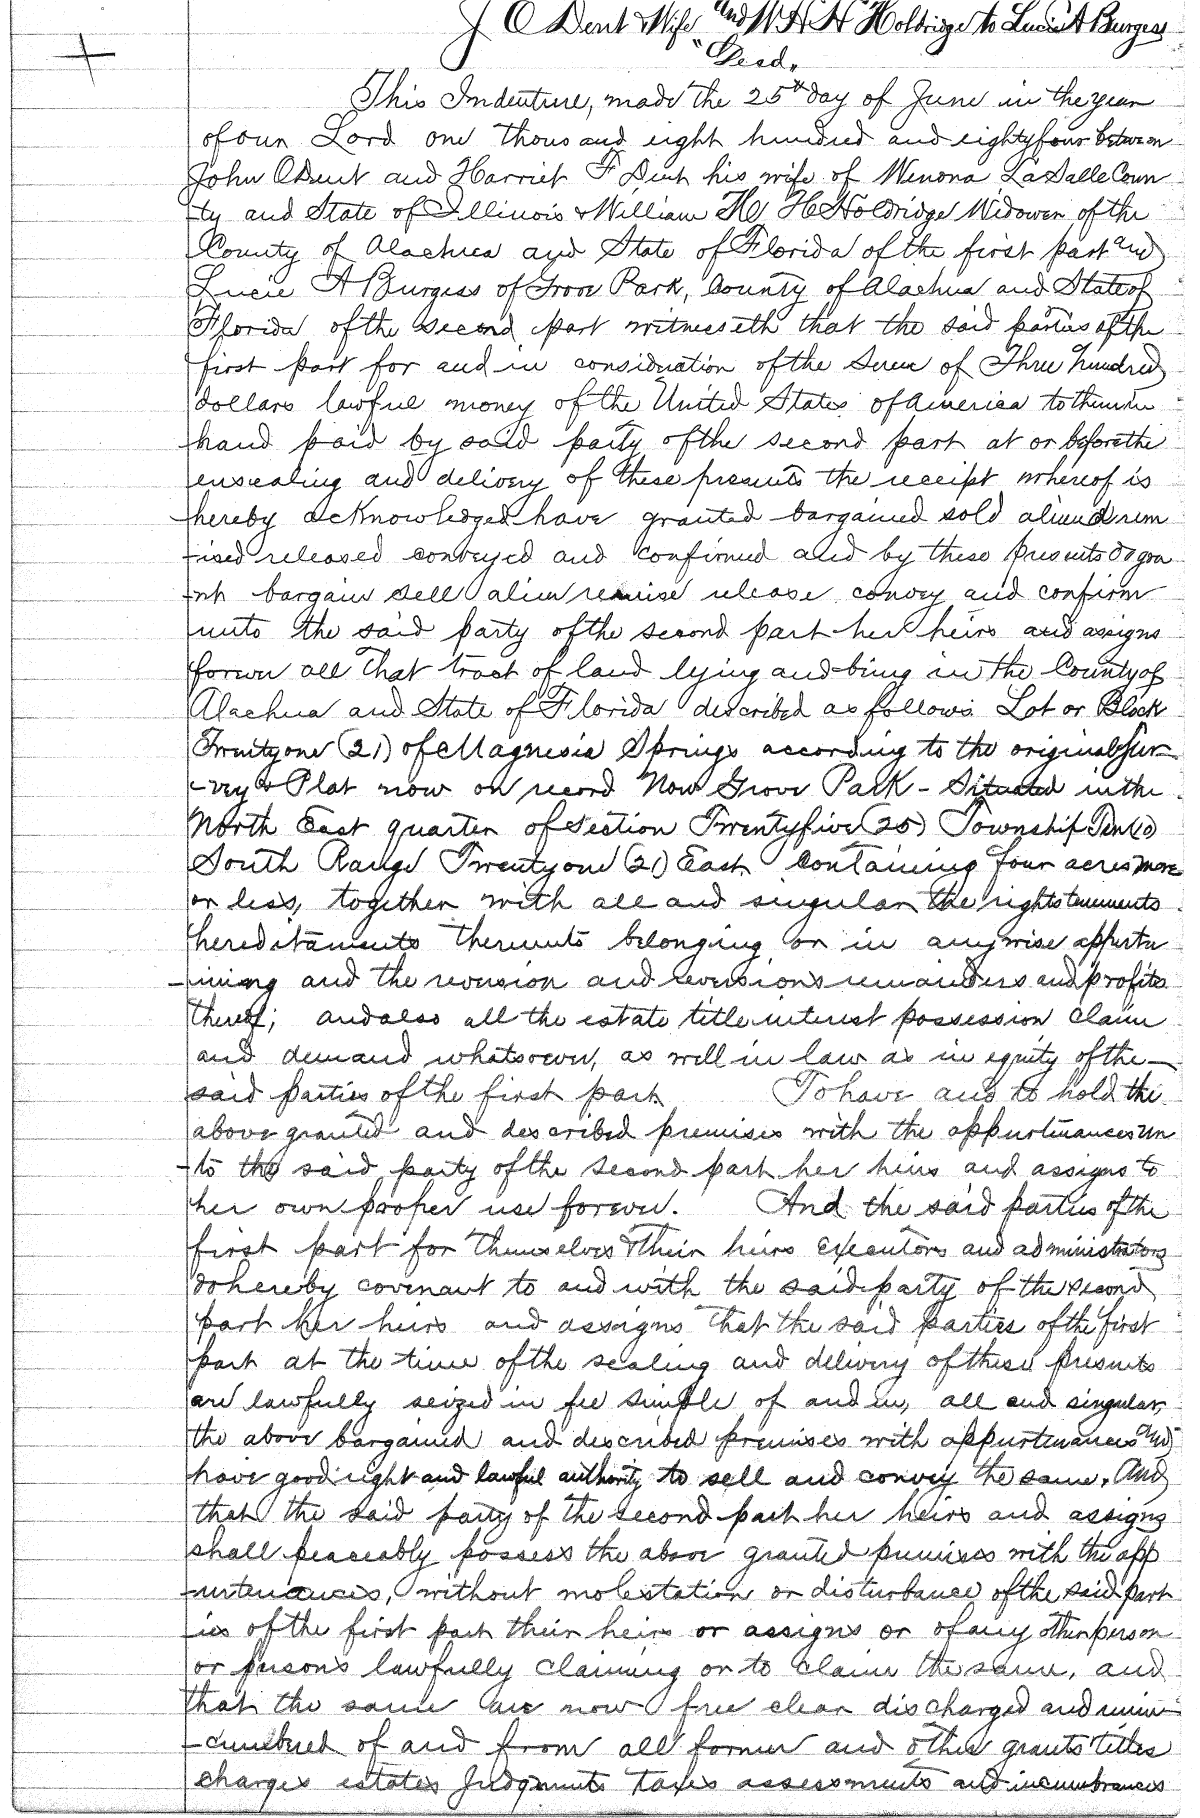 J O Dent & Wife and W H H Holdridge to Lucie A Burgess
"Deed"
This Indenture, made the 25th day of June in the year
of our Lord one thousand eight hundred and eighty four between
John O Dent and Harriet F Dent his wife of Wenona LaSalle Coun
-ty and State of Illinois & William H H Holdridge Widower of the
County of Alachua and State of Florida of the first part and
Lucie A Burgess of Grove Park, County of Alachua and State of
Florida of the second part witnesseth that the said parties of the
first part for and in consideration of the sum of Three hundred
dollars lawful money of the United States of America to them in
hand paid by said party of the second part at or before the
ensealing and delivery of these presents the receipt whereof is
hereby acknowledged have granted bargained sold aliened rem
-ised released conveyed and confirmed and by these presents do gra
-nt bargain sell alien remise release convey and confirm
unto the said party of the second part her heirs and assigns
forever all that tract of land lying and being in the County of
Alachua and State of Florida described as follows Lot or Block
Twenty one (21) of Magnesia Springs according to the original Sur-
-vey & Plat now on record Now Grove Park - Situated in the
North East quarter of Section Twenty five (25) Township Ten (10)
South Range Twenty one (21) East Containing four acres more
or less, together with all and singular the rights tenements
hereditaments thereunto belonging or in anywise apperta
-ining and the reversion and reversions remainders and profits
thereof; and also all the estate title interest possession claim
and demand whatsoever, as well in law as in equity of the
said parties of the first part. To have and to hold the
above granted and described premises with the appurtinances un
-to the said party of the second part her heirs and assigns to
her own proper use forever. And the said parties of the
first part for themselves & their heirs executors and administrators
do hereby covenant to and with the said party of the second
part her heirs and assigns that the said parties of the first
part at the time of the sealing and delivery of these presents
are lawfully seized in fee simple of and in, all and singular,
the above bargained and described premises with appurtenances and
have good right and lawful authority to sell and convey the same. And
that the said party of the second part her heirs and assigns
shall peaceably possess the above granted premises with the app
-urtenances, without molestation or disturbance of the said part
-ies of the first part their heirs or assigns or of any other person
or persons lawfully claiming or to claim the same, and
that the same are now free clear discharged and unin
-cumbered of and from all former and other grants titles
charges estates Judgments taxes assessments and incumbrances